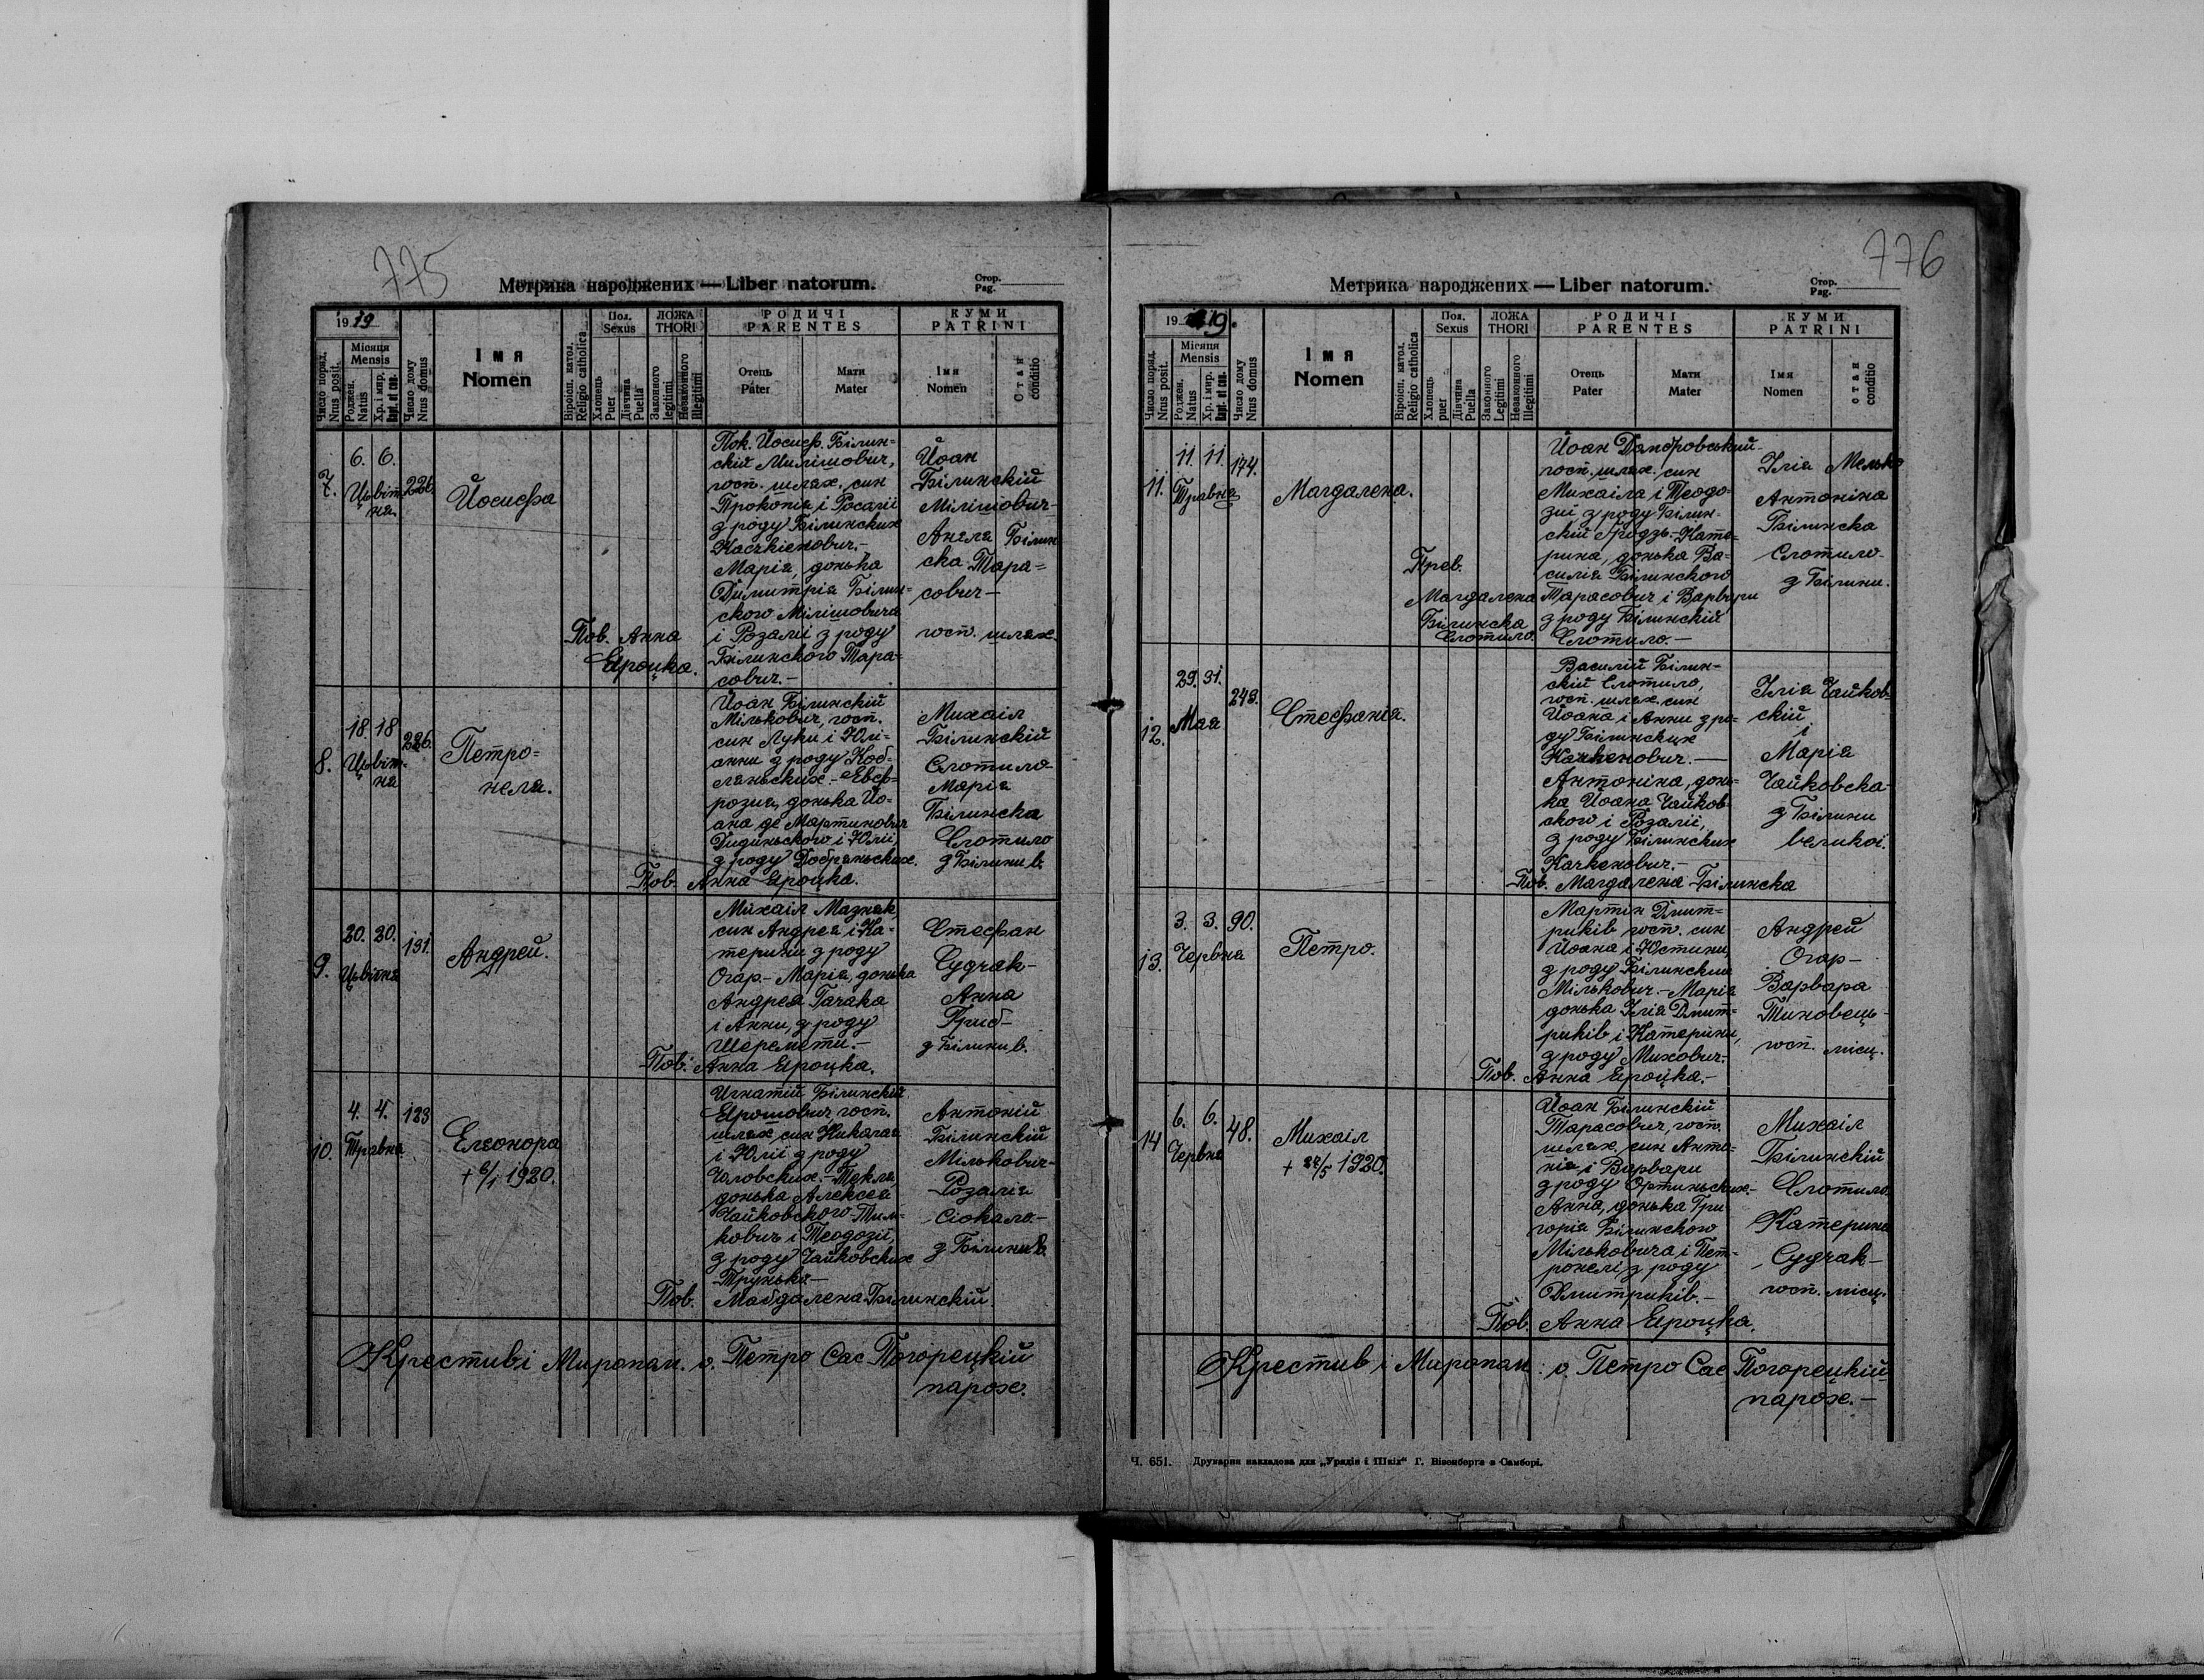 775
Метрика народжених — Liber natorum.
Стор.
Pag.
1919
Число поряд.
Nrus posit.
Місяця
Mensis
Роджен.
Natus
Хр. і мир.
Bapt. et con.
Число дому
Nrus domus
Імя
Nomen
Віроісп. катол.
Religio catholica
Пол.
Sexus
Хлопець
Puer
Дівчина
Puella
ЛОЖА
THORI
Законного
legitimi
Незаконного
illegitimi
РОДИЧІ
PARENTES
Отець
Pater
Мати
Mater
КУМИ
PATRINI
Імя
Nomen
Стан
conditio
7.
6. 6.
Цьвіт-
ня
226.
Йосифа
Пок. Йосиф Білин-
скій Милішович,
госп. шлях. син
Прокопія і Росалії
з роду Білинских
Качкієнович.-
Марія, донька
Димитрія Білин-
ского Мілішовича
і Розалії з роду
Білинского Тара-
сович.-
Йоан
Білинскій
Мілішович-
Анеля Білин
ска Тара=
сович-
госп. шлях.
Пов. Анна
Яроцка.
8.
18. 18
Цьвіт-
ня
226.
Петро=
неля.
Йоан Білинскій
Мількович, госп.
син Луки і Юлі-
анни з роду Коб-
лянських.- Евф-
розия, донька Йо-
ана де Мартинович
Дидинського і Юлії,
з роду Добряньских.
Михаіл
Білинскій
Слотило-
Марія
Білинска
Слотило
з Білини в.
Пов. Анна Яроцка.
9.
20. 20.
Цьвітня
131.
Андрей.
Михаіл Мазняк,
син Андрея і Ка-
терини з роду
Огар- Марія, донька
Андрея Гачака
і Анни, з роду
Шеремети.-
Стефан
Судчак-
Анна
Гриб-
з Білини в.
Пов. Анна Яроцка.
10.
4. 4.
Травня
123
Елеонора
+ 6/1 1920.
Игнатій Білинскій
Ярошович, госп.
шлях. син Николая
і Юлії з роду
Чаловских.- Текля,
донька Алексея
Чайковского-Тим-
кович і Теодозії,
з роду Чайковских
Трунька-
Антоній
Білинскій
Мількович-
Розалія
Сіокало.-
з Білини В.
Пов. Магдалена Білинскій
Крестив і Миропом. о. Петро Сас Погорецкій
парох.
776
Метрика народжених — Liber natorum.
Стор.
Pag.
1919.
Число поряд.
Nrus posit.
Місяця
Mensis
Роджен.
Natus
Хр. і мир.
Bapt. et con.
Число дому
Nrus domus
Імя
Nomen
Віроісп. катол.
Religio catholica
Пол.
Sexus
Хлопець
puer
Дівчина
Puella
ЛОЖА
THORI
Законного
Legitimi
Незаконного
illegitimi
РОДИЧІ
PARENTES
Отець
Pater
Мати
Mater
КУМИ
PATRINI
Імя
Nomen
стан
conditio
11.
11. 11.
Травня
174.
Магдалена.
Йоан Домбровський
госп. шлях. син
Михаіла і Теодо-
зиї з роду Білин-
скій Гродзь.-Кате-
рина, донька Ва-
силія Білинского
Тарасович і Варвари
з роду Білинскій
Слотило.-
Ілія Мелько
Антоніна
Білинска
Слотило-
з Білини.
Прев.
Магдалена
Білинска
Слотило.
12.
29. 31.
Мая
248.
Стефанія.
Василій Білин-
скій Слотило,
госп. шлях. син
Йоана і Анни з ро-
ду Білинских
Качкенович.-
Антоніна, донь-
ка Йоана Чайков-
ского і Розалії,
з роду Білинских
Качкенович.-
Ілія Чайков-
скій
і
Марія
Чайковска-
з Білини
великої.
Пов. Магдалена Білинска
13.
3. 3.
Червня
90.
Петро.
Мартин Дмит-
риків госп. син
Йоана і Юстини,
з роду Білинский
Мількович.- Марія
донька Ілія Дмит-
риків і Катерини,
з роду Михович.-
Андрей
Огар-
Варвара
Тиновець-
госп. місц.
Пов. Анна Яроцка.-
14
6. 6.
Червня
48.
Михаіл
+ 22/5 1920.
Йоан Білинскій
Тарасович, госп.
шлях. син Анто-
нія і Варвари
з роду Ортиньских.-
Анна, донька Гри
горія Білинского
Мільковича і Пет-
ронелі, з роду
Дмитриків.-
Михаіл
Білинскій
Слотило
Катерина
Судчак-
госп. місц.
Пов. Анна Яроцка.
Крестив і Миропом: о. Петро Сас Погорецкій
парох.-
Ч. 651. Друкарня накладова для „Урядів і Шкіл" Г. Візенберга в Самборі.